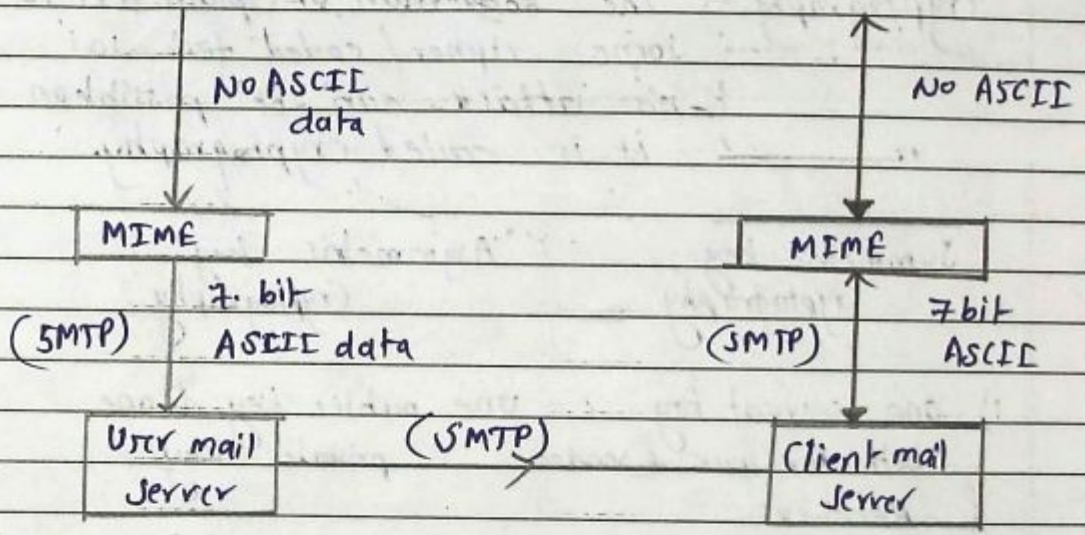 No ASCII
data
MIME
7. bit
(SMTP) ASCII data
User mail
server
(SMTP)
No ASCII
MIME
(SMTP) 7 bit
ASCII
Client mail
server